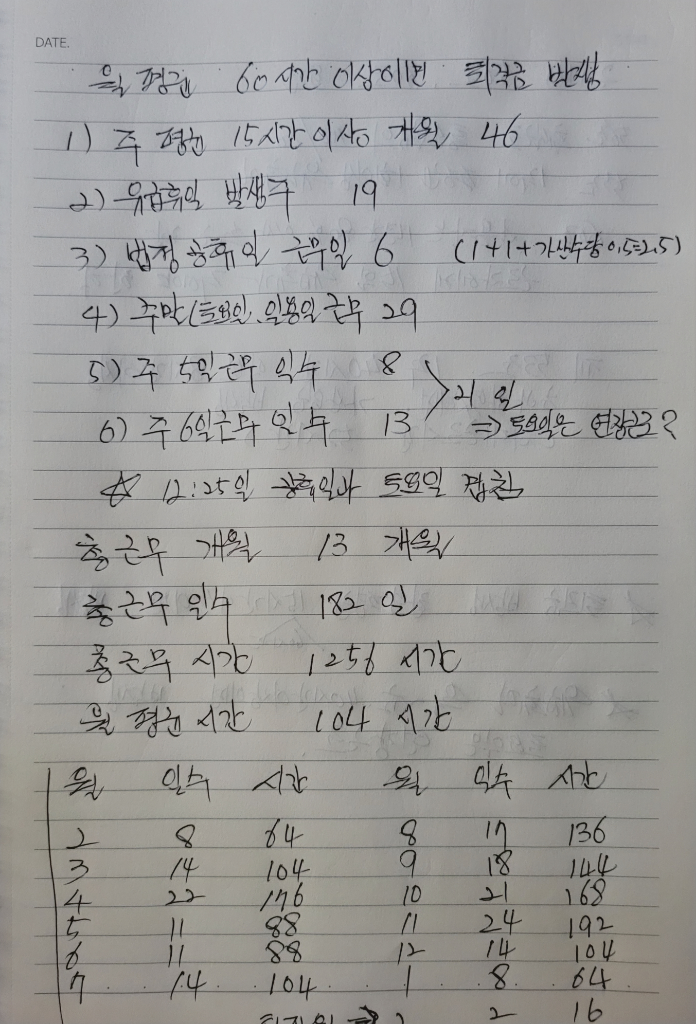 DATE.
월 평균 60시간 이상이면 퇴직금 발생
1) 주 평균 15시간 이상 개월 46
2) 유급휴일 발생주 19
3) 법정 공휴일 근무일 6 (1+1+가산수당0.5=2.5)
4) 주말(토요일, 일용일 근무 29
5) 주 5일근무 일수 8
6) 주 6일근무 일수 13
> 21일
⇒ 토요일은 연장근로?
☆ 12:25일 공휴일과 토요일 겹침
총 근무 개월 13 개월
총 근무 일수 182 일
총 근무 시간 1256 시간
월 평균 시간 104 시간
월 일수 시간 월 일수 시간
2 8 64 8 17 136
3 14 104 9 18 144
4 22 176 10 21 168
5 11 88 11 24 192
6 11 88 12 14 104
7 14 104 1 8 64
2 16